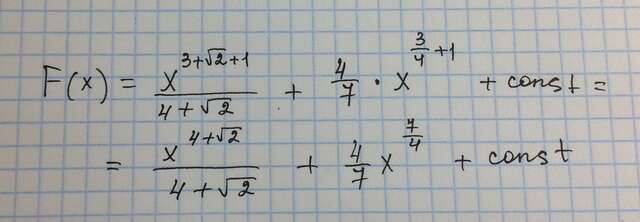 F(x) = x^(3+√2+1) / (4+√2) + 4/7 · x^(3/4+1) + const =
= x^(4+√2) / (4+√2) + 4/7 x^(7/4) + const